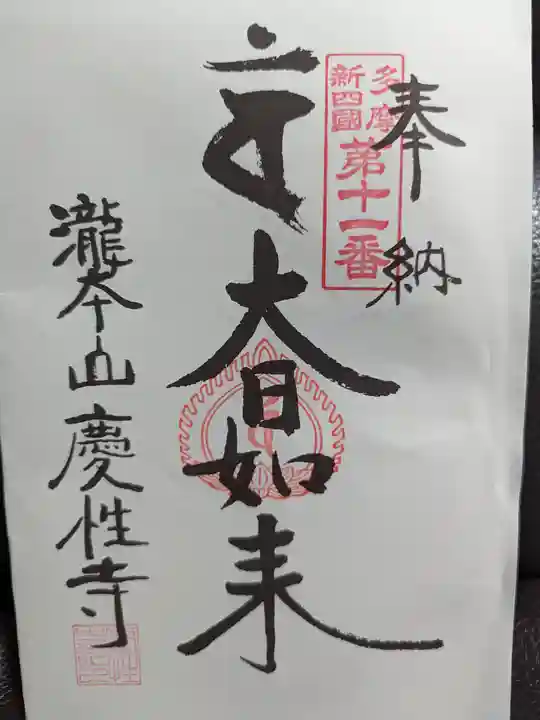 奉納
多摩
新四國
第十一番
大日如来
瀧本山慶性寺